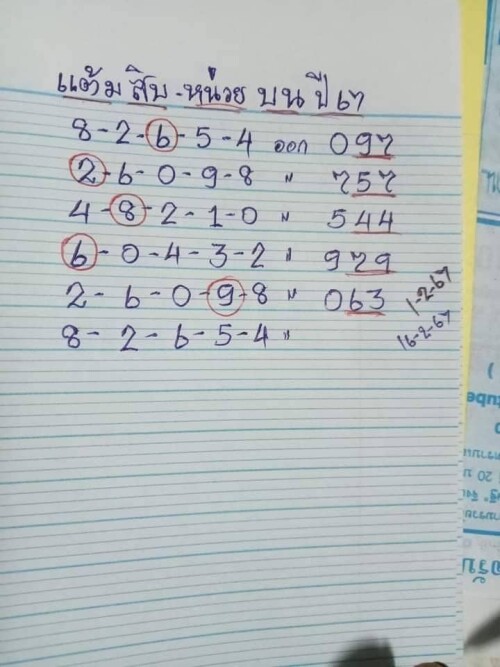 แต้ม สิบ - หน่วย บน ปี 67
8 - 2 - 6 - 5 - 4 ออก 097
2 - 6 - 0 - 9 - 8 " 757
4 - 8 - 2 - 1 - 0 " 544
6 - 0 - 4 - 3 - 2 " 979
2 - 6 - 0 - 9 - 8 " 063 1-2-67
8 - 2 - 6 - 5 - 4 " 16-2-67